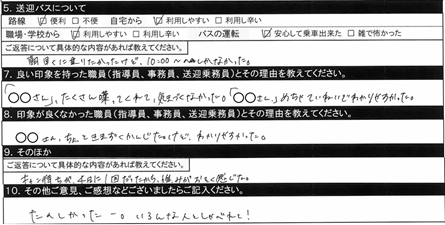 5. 送迎バスについて
路線 ☑便利 □不便 自宅から ☑利用しやすい □利用し辛い
職場・学校から ☑利用しやすい □利用し辛い バスの運転 ☑安心して乗車出来た □雑で怖かった
ご返答について具体的な内容があれば教えてください。
朝早くに乗りたかったけど、10:00〜しかなかった。
7. 良い印象を持った職員(指導員、事務員、送迎乗務員)とその理由を教えてください。
「○○さん」たくさん喋ってくれて、気まづくなかった。「○○さん」めちゃていねいでわかりやすかった。
8. 印象が良くなかった職員(指導員、事務員、送迎乗務員)とその理由を教えてください。
○○さん、ちょっと
かんじたけど、わかりやすかった。
9. そのほか
ご返答について具体的な内容があれば教えてください。
キャン待ちが、4日に1回だったから、進みがおそく感じた。
10. その他ご意見、ご感想などございましたらご記入ください。
たのしかったー。いろんな人としゃべれて!